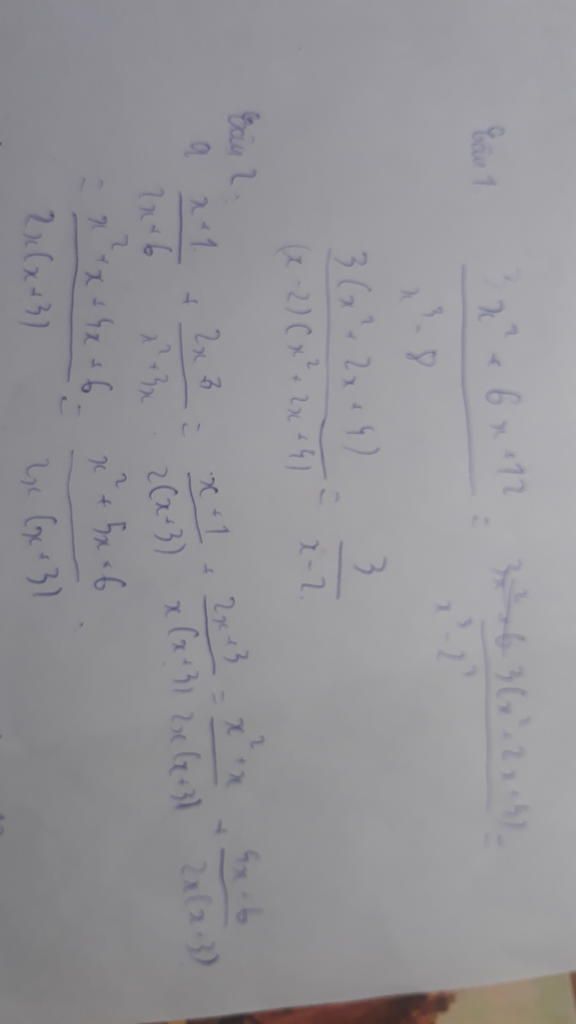 Bài 1
3x² + 6x + 12 / x³ - 8 = 3(x² + 2x + 4) / x³ - 2³ =
3(x² + 2x + 4) / (x - 2)(x² + 2x + 4) = 3 / x - 2
Bài 2:
a x + 1 / 2x + 6 + 2x 3 / x² + 3x = x + 1 / 2(x + 3) + 2x + 3 / x(x + 3) = x² + x / 2x(x + 3) + 4x + 6 / 2x(x + 3)
= x² + x + 4x + 6 / 2x(x + 3) = x² + 5x + 6 / 2x(x + 3).